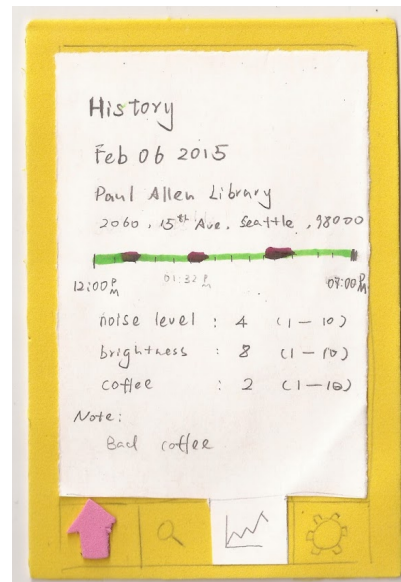 History
Feb 06 2015
Paul Allen Library
2060, 15th Ave. Seattle, 98000
12:00 PM 01:32 PM 07:00 PM
noise level : 4 (1 - 10)
brightness : 8 (1 - 10)
coffee : 2 (1 - 10)
Note:
Bad coffee